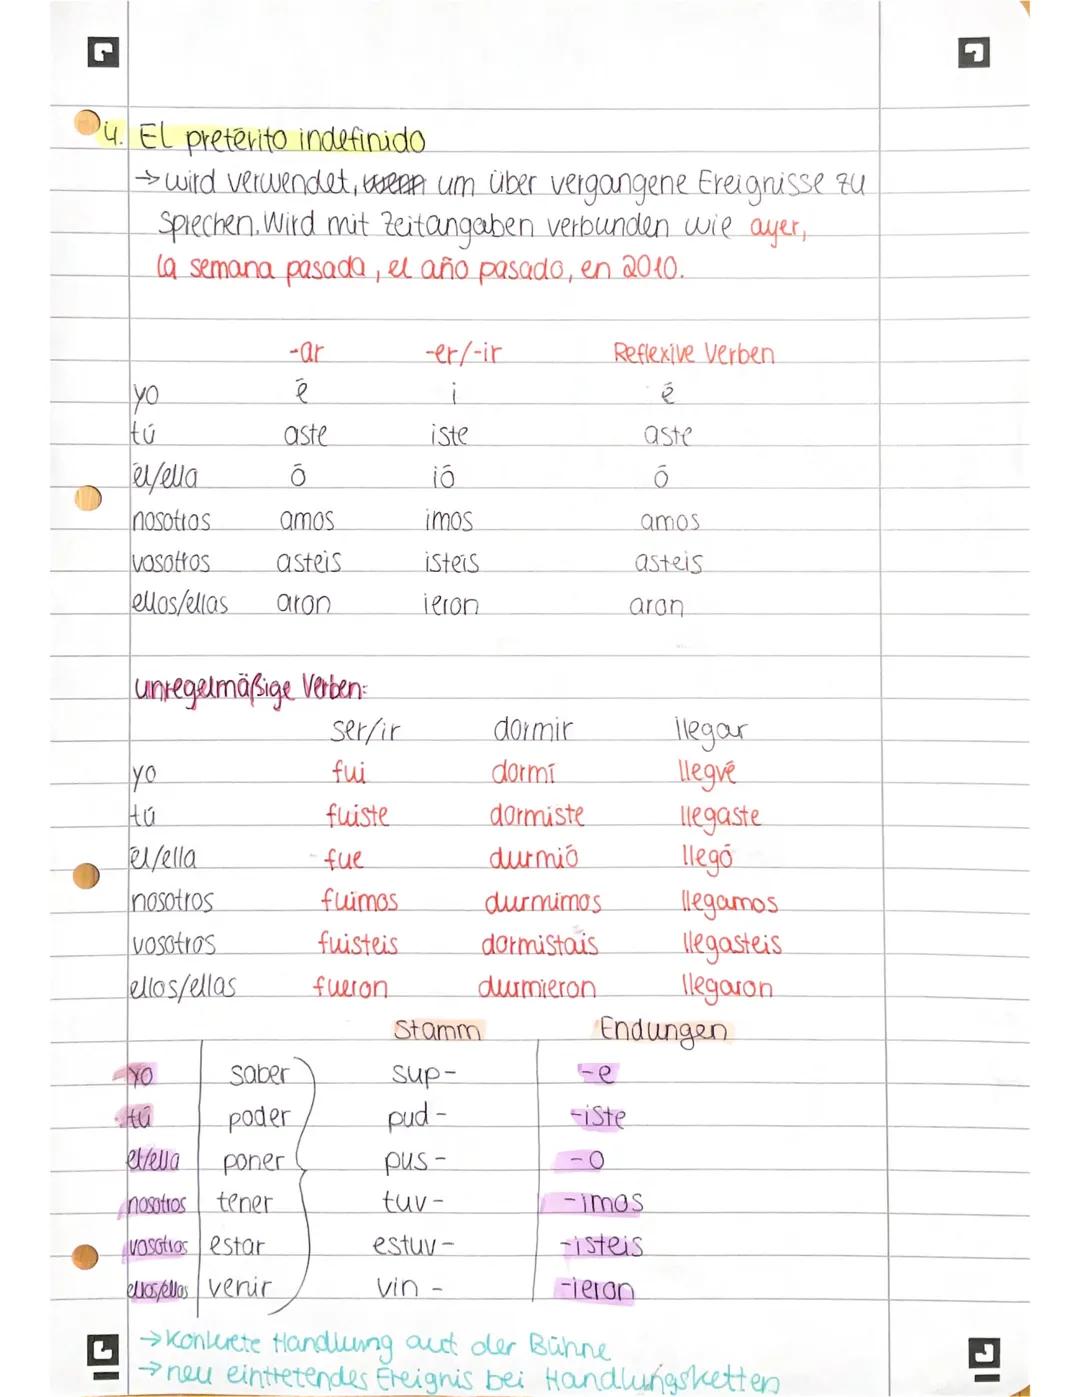 4. El pretérito indefinido
→ wird verwendet, wenn um über vergangene Ereignisse zu
sprechen. Wird mit Zeitangaben verbunden wie ayer,
la semana pasada, el año pasado, en 2010.
-ar -er/-ir Reflexive Verben
yo é i é
tú aste iste aste
él/ella ó ió ó
nosotros amos imos amos
vosotros asteis isteis asteis
ellos/ellas aron ieron aron
unregelmäßige Verben:
ser/ir dormir llegar
yo fui dormí llegué
tú fuiste dormiste llegaste
él/ella fue durmió llegó
nosotros fuimos durmimos llegamos
vosotros fuisteis dormistais llegasteis
ellos/ellas fueron durmieron llegaron
Stamm Endungen
yo saber sup- -e
tú poder pud- -iste
el/ella poner pus- -o
nosotros tener tuv- -imos
vosotros estar estuv- -isteis
ellos/ellas venir vin- -ieron
→ Konkrete Handlung auf der Bühne
→ neu eintretendes Ereignis bei Handlungsketten